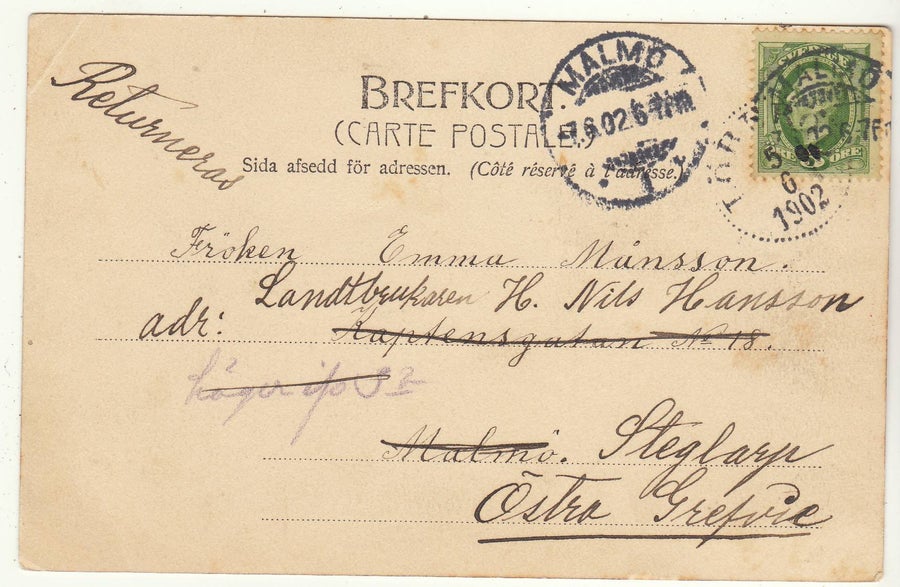 Returneras
BREFKORT.
(CARTE POSTALE.)
Sida afsedd för adressen. (Côté réservé à l'adresse.)
MALMÖ
7.6.02 6-7 FM
1
SVERIGE
5 6 1902
Fröken Emma Månsson.
Landtbrukaren H. Nils Hansson
adr: Kaptensgatan No 18.
Malmö. Steglarp
Östra Grefvie